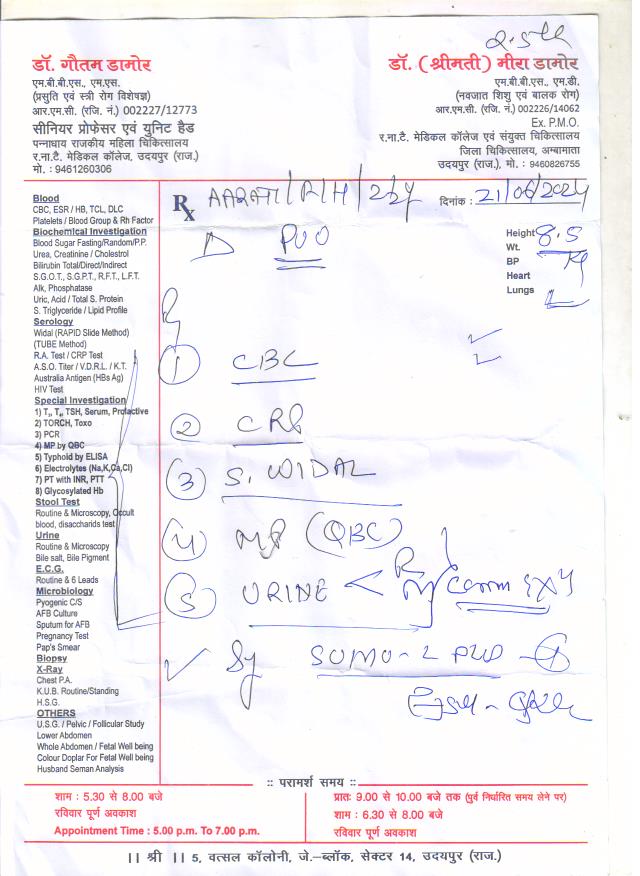 डॉ. गौतम डामोर
एम.बी.बी.एस., एम.एस.
(प्रसुति एवं स्त्री रोग विशेषज्ञ)
आर.एम.सी. (रजि. नं.) 002227/12773
सीनियर प्रोफेसर एवं युनिट हैड
पन्नाधाय राजकीय महिला चिकित्सालय
र.ना.टै. मेडिकल कॉलेज, उदयपुर (राज.)
मो. : 9461260306
डॉ. (श्रीमती) मीरा डामोर
एम.बी.बी.एस., एम.डी.
(नवजात शिशु एवं बालक रोग)
आर.एम.सी. (रजि. नं.) 002226/14062
Ex. P.M.O.
र.ना.टै. मेडिकल कॉलेज एवं संयुक्त चिकित्सालय
जिला चिकित्सालय, अम्बामाता
उदयपुर (राज.), मो. : 9460826755
Blood
CBC, ESR / HB, TCL, DLC
Platelets / Blood Group & Rh Factor
Biochemical Investigation
Blood Sugar Fasting/Random/P.P.
Urea, Creatinine / Cholestrol
Bilirubin Total/Direct/Indirect
S.G.O.T., S.G.P.T., R.F.T., L.F.T.
Alk, Phosphatase
Uric, Acid / Total S. Protein
S. Triglyceride / Lipid Profile
Serology
Widal (RAPID Slide Method)
(TUBE Method)
R.A. Test / CRP Test
A.S.O. Titer / V.D.R.L. / K.T.
Australia Antigen (HBs Ag)
HIV Test
Special Investigation
1) T₃, T₄, TSH, Serum, Prolactive
2) TORCH, Toxo
3) PCR
4) MP by QBC
5) Typhoid by ELISA
6) Electrolytes (Na,K,Ca,Cl)
7) PT with INR, PTT
8) Glycosylated Hb
Stool Test
Routine & Microscopy, Occult
blood, disaccharids test
Urine
Routine & Microscopy
Bile salt, Bile Pigment
E.C.G.
Routine & 6 Leads
Microbiology
Pyogenic C/S
AFB Culture
Sputum for AFB
Pregnancy Test
Pap's Smear
Biopsy
X-Ray
Chest P.A.
K.U.B. Routine/Standing
H.S.G.
OTHERS
U.S.G. / Pelvic / Follicular Study
Lower Abdomen
Whole Abdomen / Fetal Well being
Colour Doplar For Fetal Well being
Husband Seman Analysis
Rx AARATI
दिनांक : 21/06/2024
PUO
Height 8.5
Wt. Kg
BP
Heart
Lungs
① CBC
② CRP
③ S. WIDAL
④ MP (QBC)
⑤ URINE < R/M
Sy SUMO-L
:: परामर्श समय ::
शाम : 5.30 से 8.00 बजे
रविवार पूर्ण अवकाश
Appointment Time : 5.00 p.m. To 7.00 p.m.
प्रातः 9.00 से 10.00 बजे तक (पुर्व निर्धारित समय लेने पर)
शाम : 6.30 से 8.00 बजे
रविवार पूर्ण अवकाश
।। श्री ।। 5, वत्सल कॉलोनी, जे.-ब्लॉक, सेक्टर 14, उदयपुर (राज.)